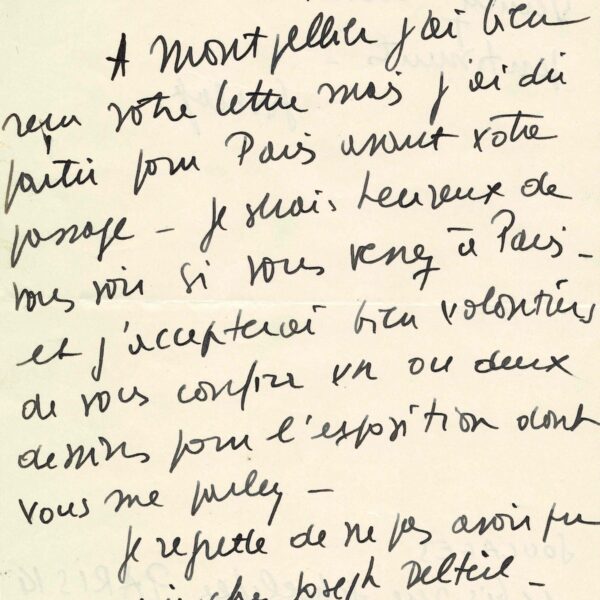 A Montpellier j'ai bien
reçu votre lettre mais j'ai dû
partir pour Paris avant votre
passage - je serais heureux de
vous voir si vous venez à Paris -
et j'accepterai bien volontiers
de vous confier un ou deux
dessins pour l'exposition dont
vous me parlez -
Je regrette de ne pas avoir pu
cher Joseph Delteil -